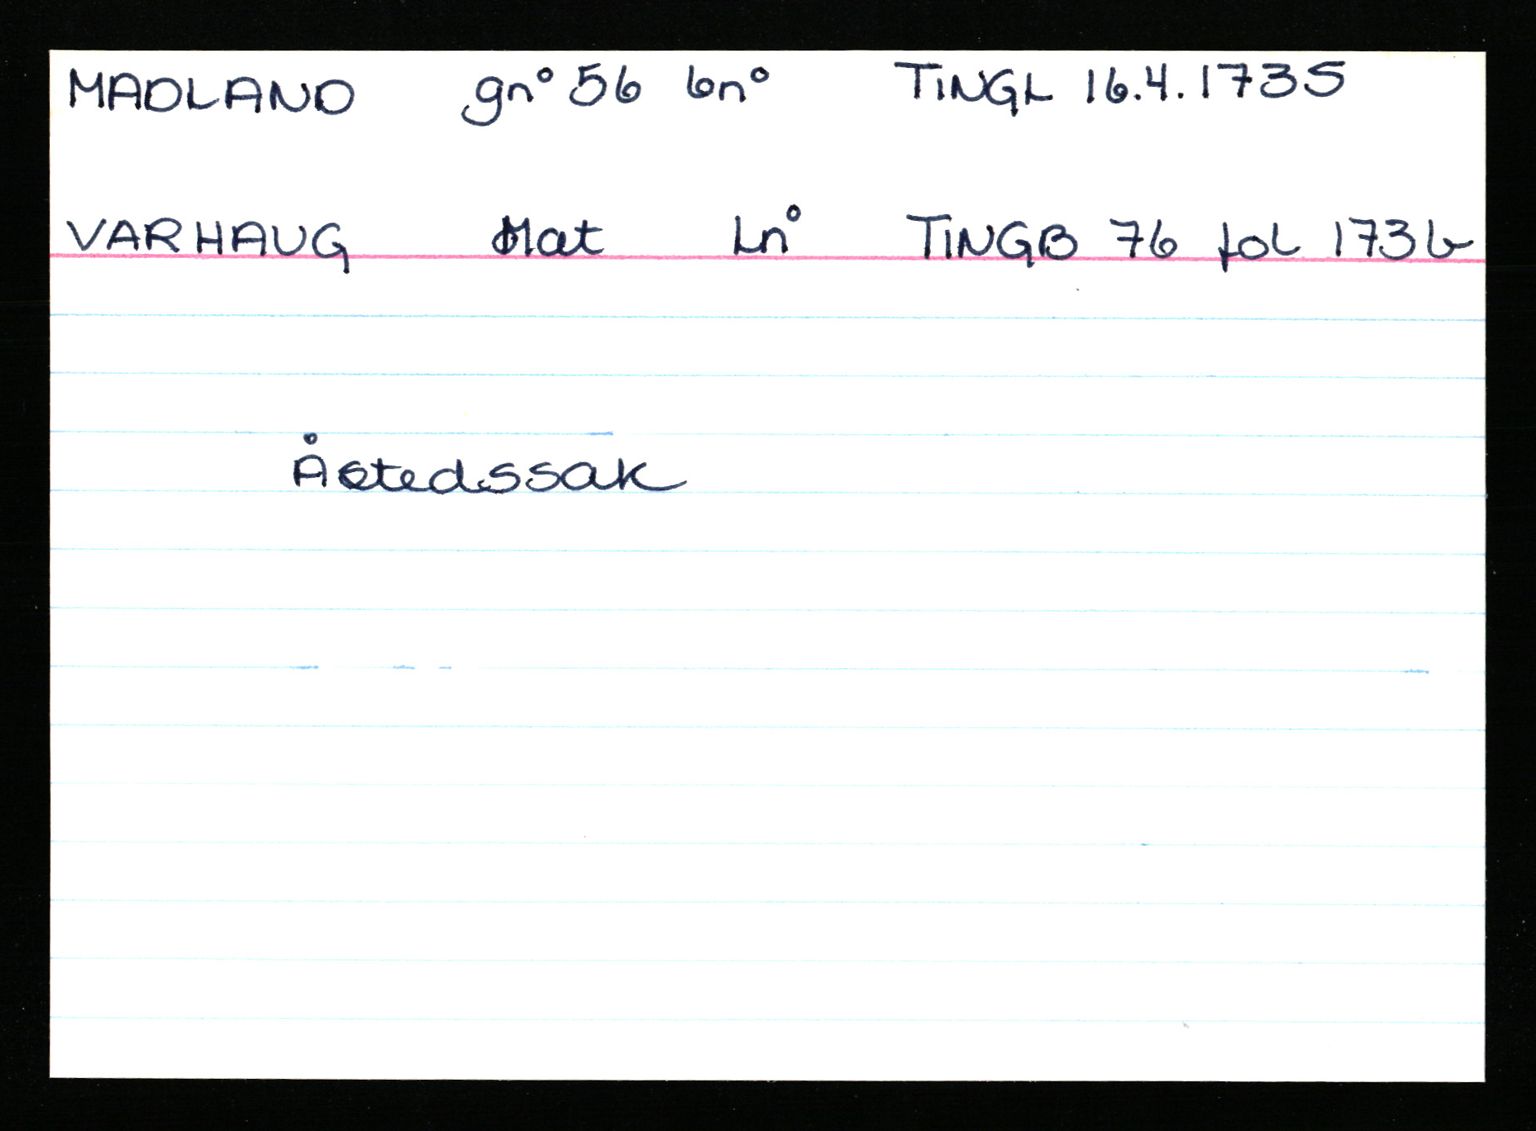 MADLAND gn° 56 bn° TINGL 16.4.1735
VARHAUG Mat Ln° TINGB 76 fol 173b
Åstedssak